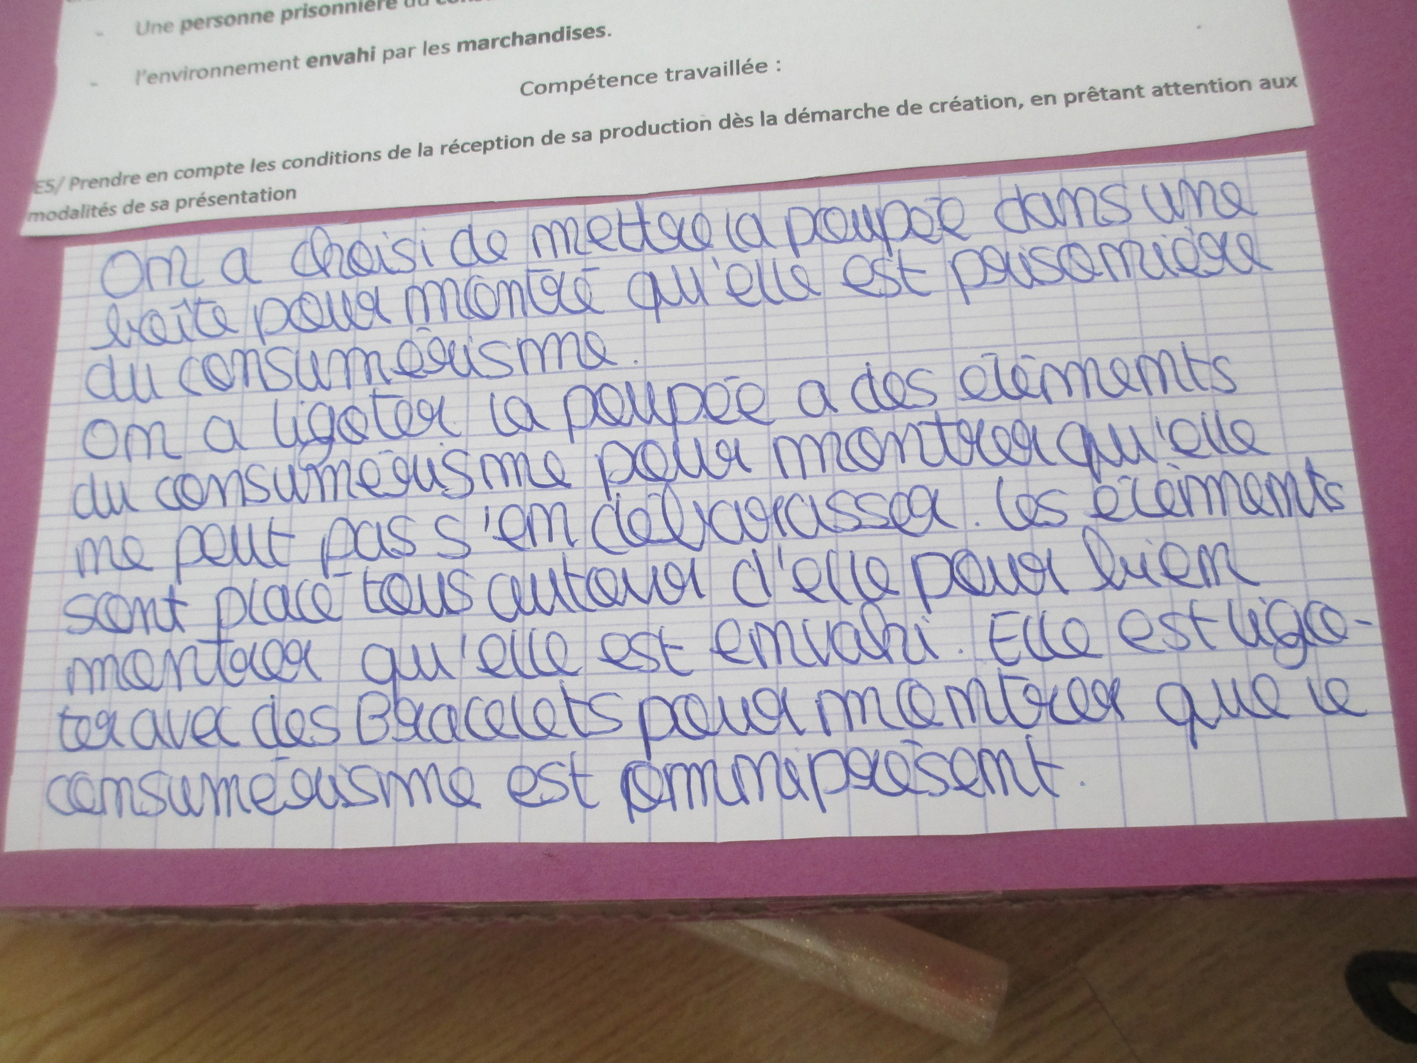 - Une personne prisonnière du
- l'environnement envahi par les marchandises.
Compétence travaillée :
ES/ Prendre en compte les conditions de la réception de sa production dès la démarche de création, en prêtant attention aux
modalités de sa présentation
On a choisi de mettre la poupée dans une
boîte pour montré qu'elle est prisonnière
du consumérisme.
On a ligoter la poupée a des élèments
du consumérisme pour montrer qu'elle
ne peut pas s'en débarrasser. Les élèments
sont placé tous autour d'elle pour bien
montrer qu'elle est envahi. Elle est ligo-
ter avec des Bracelets pour montrer que le
consumérisme est omniprésent.